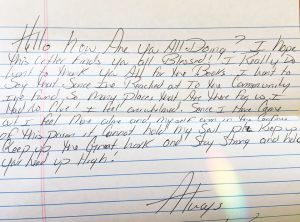 Hello How Are You All Doing? I hope
this Letter Finds you all Blessed! I Really Do
Want to thank You All for the Books I Want to
Say that Since I've Reached out To the Community
I've found So many Places that Are there For us
that's So
Like I feel
Since I Have Come
out I Feel More alive and my self even in the Confines
of this Prison it Cannot hold My Soul
Keep up
Keep up the Great Work and Stay Strong and hold
your Head up High!
Always